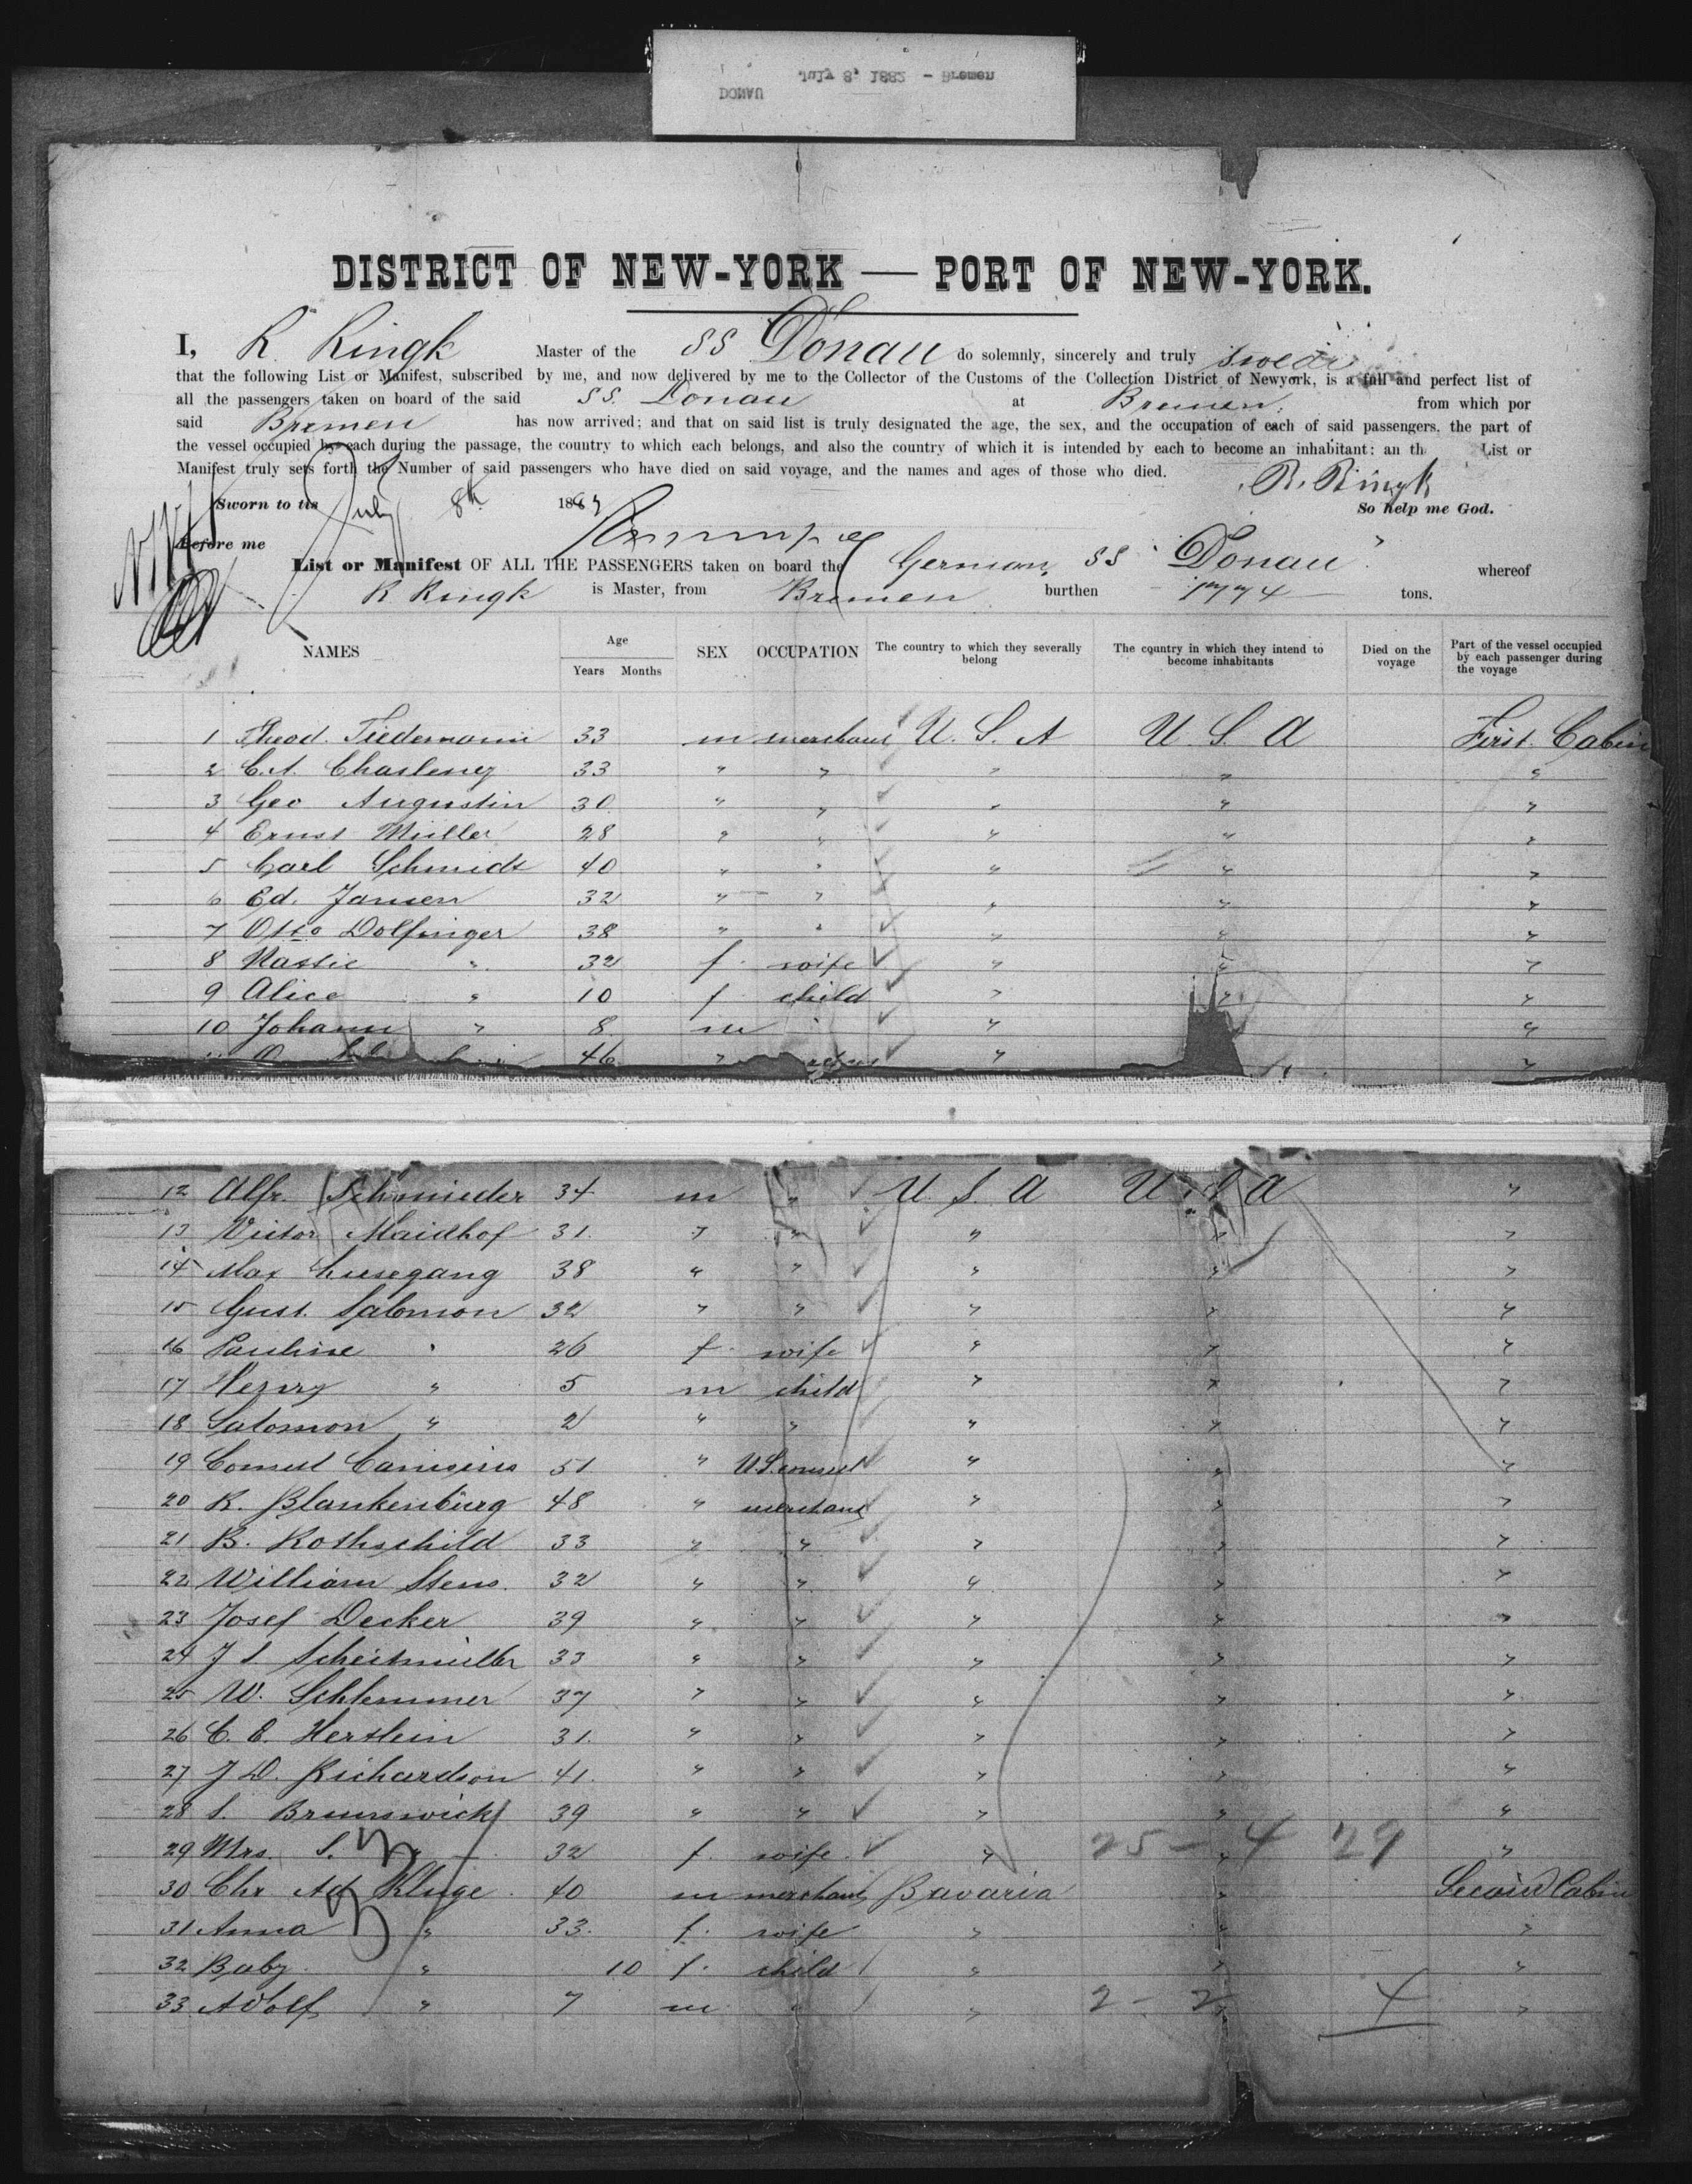 July 8, 1882 - Bremen
DONAU
DISTRICT OF NEW-YORK — PORT OF NEW-YORK.
I, R. Ringk Master of the SS Donau do solemnly, sincerely and truly swear
that the following List or Manifest, subscribed by me, and now delivered by me to the Collector of the Customs of the Collection District of Newyork, is a full and perfect list of
all the passengers taken on board of the said SS. Donau at Bremen, from which por
said Bremen has now arrived; and that on said list is truly designated the age, the sex, and the occupation of each of said passengers, the part of
the vessel occupied by each during the passage, the country to which each belongs, and also the country of which it is intended by each to become an inhabitant: an th List or
Manifest truly sets forth the Number of said passengers who have died on said voyage, and the names and ages of those who died.
R. Ringk
Sworn to tis July 8th 188 So help me God.
Before me
List or Manifest OF ALL THE PASSENGERS taken on board the German SS "Donau" whereof
R Ringk is Master, from Bremen burthen 1774 tons.
NAMES Age Years Months SEX OCCUPATION The country to which they severally belong The country in which they intend to become inhabitants Died on the voyage Part of the vessel occupied by each passenger during the voyage
1 Theod. Tiedemann 33 m merchant U. S. A U S A First Cabin
2 C. A. 33 " " " " "
3 Geo Augustin 30 " " " " "
4 Ernst Müller 28 " " " " "
5 Carl Schmidt 40 " " " " "
6 Ed. Jansen 32 " " " " "
7 Otto Dolfinger 38 " " " " "
8 " 32 f wife " " "
9 Alice " 10 f child " " "
10 Johann " 8 m " " " "
46 " " "
12 Alfr. Schmieder 34 m " U. S. A U. S. A "
13 Victor Maidhof 31. " " " " "
14 Max Liesegang 38 " " " " "
15 Gust. Salomon 32 " " " " "
16 Pauline " 26 f wife " " "
17 Henry " 5 m child " " "
18 Salomon " 2 " " " " "
19 Consul Canisius 51 " U.S. consul " " "
20 R. Blankenburg 48 " merchant " " "
21 B. Rothschild 33 " " " " "
22 William Stens. 32 " " " " "
23 Josef Decker 39 " " " " "
24 J S. Scheitmüller 33 " " " " "
25 W. Schlemmer 37 " " " " "
26 C. E. Herstein 31. " " " " "
27 J D. Richardson 41. " " " " "
28 S. Brunswick 39 " " " " "
29 Mrs. S. " 32 f. wife " " " 25 - 4 29
30 Chr Ad Kluge 40 m merchant Bavaria " Second Cabin
31 Anna " 33. f. wife " " "
32 Baby " 10 f. child " " "
33 Adolf " 7 m " " " " 2 - 2 4